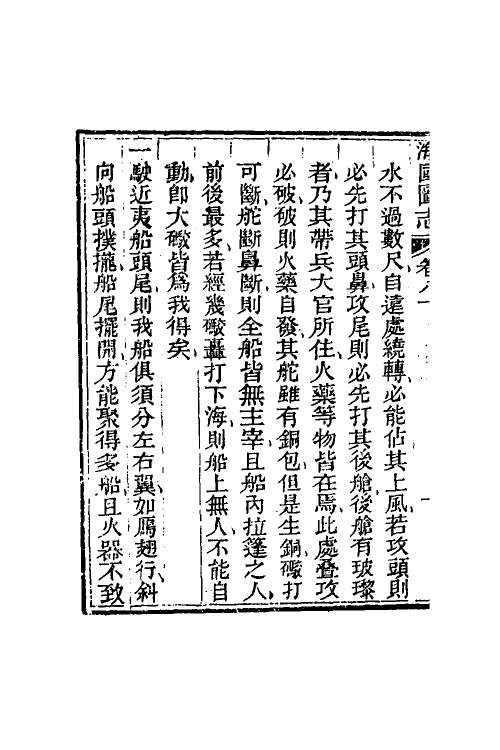 海國圖志 卷八十
水不過數尺自遠處繞轉必能佔其上風若攻頭則
必先打其頭鼻攻尾則必先打其後艙後艙有玻瓈
者乃其帶兵大官所住火藥等物皆在焉此處叠攻
必破破則火藥自發其舵雖有銅包但是生銅礮打
可斷舵斷鼻斷則全船皆無主宰且船內拉篷之人
前後最多若經幾礮轟打下海則船上無人不能自
動卽大礮皆爲我得矣
一駛近夷船頭尾則我船俱須分左右翼如鴈翅行斜
向船頭撲攏船尾擺開方能聚得多船且火器不致